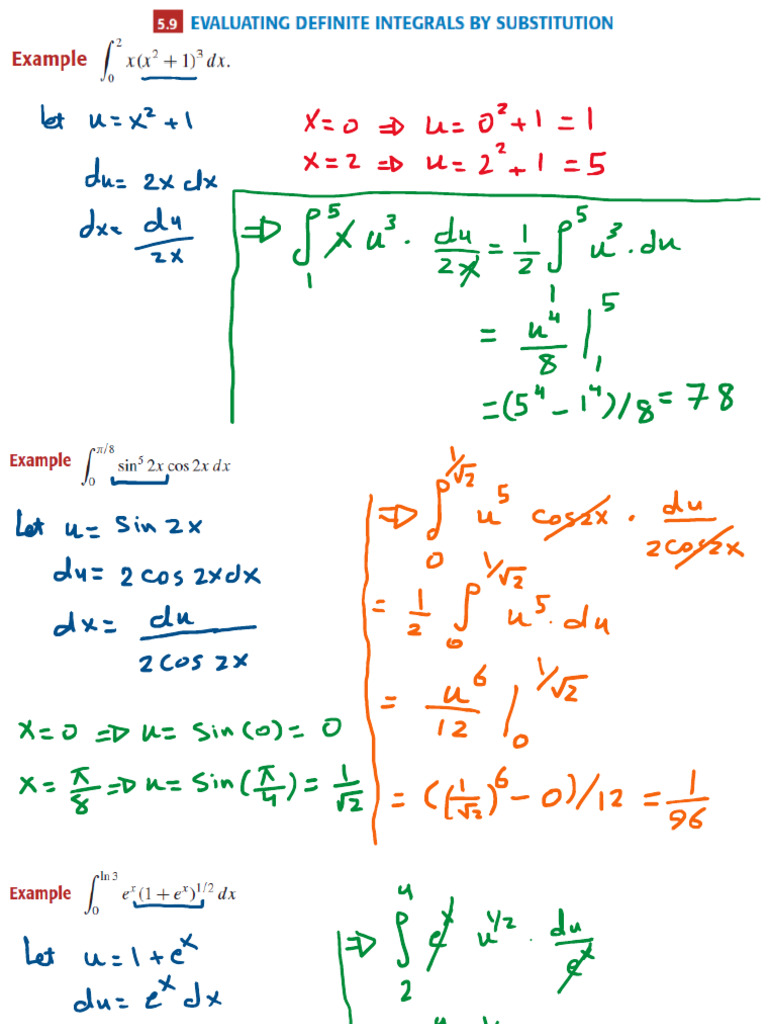 5.9 EVALUATING DEFINITE INTEGRALS BY SUBSTITUTION
Example ∫₀² x(x² + 1)³ dx.
let u = x² + 1
x = 0 ⇒ u = 0² + 1 = 1
du = 2x dx
x = 2 ⇒ u = 2² + 1 = 5
dx = du/2x
⇒ ∫₁⁵ x u³ · du/2x = 1/2 ∫₁⁵ u³ · du
= u⁴/8 |₁⁵
= (5⁴ - 1⁴)/8 = 78
Example ∫₀^(π/8) sin⁵ 2x cos 2x dx
Let u = sin 2x
du = 2 cos 2x dx
dx = du / 2 cos 2x
x = 0 ⇒ u = sin(0) = 0
x = π/8 ⇒ u = sin(π/4) = 1/√2
⇒ ∫₀^(1/√2) u⁵ cos2x · du/2cos2x
= 1/2 ∫₀^(1/√2) u⁵ · du
= u⁶/12 |₀^(1/√2)
= ((1/√2)⁶ - 0)/12 = 1/96
Example ∫₀^(ln 3) eˣ(1 + eˣ)^(1/2) dx
Let u = 1 + eˣ
du = eˣ dx
⇒ ∫₂⁴ eˣ u^(1/2) · du/eˣ